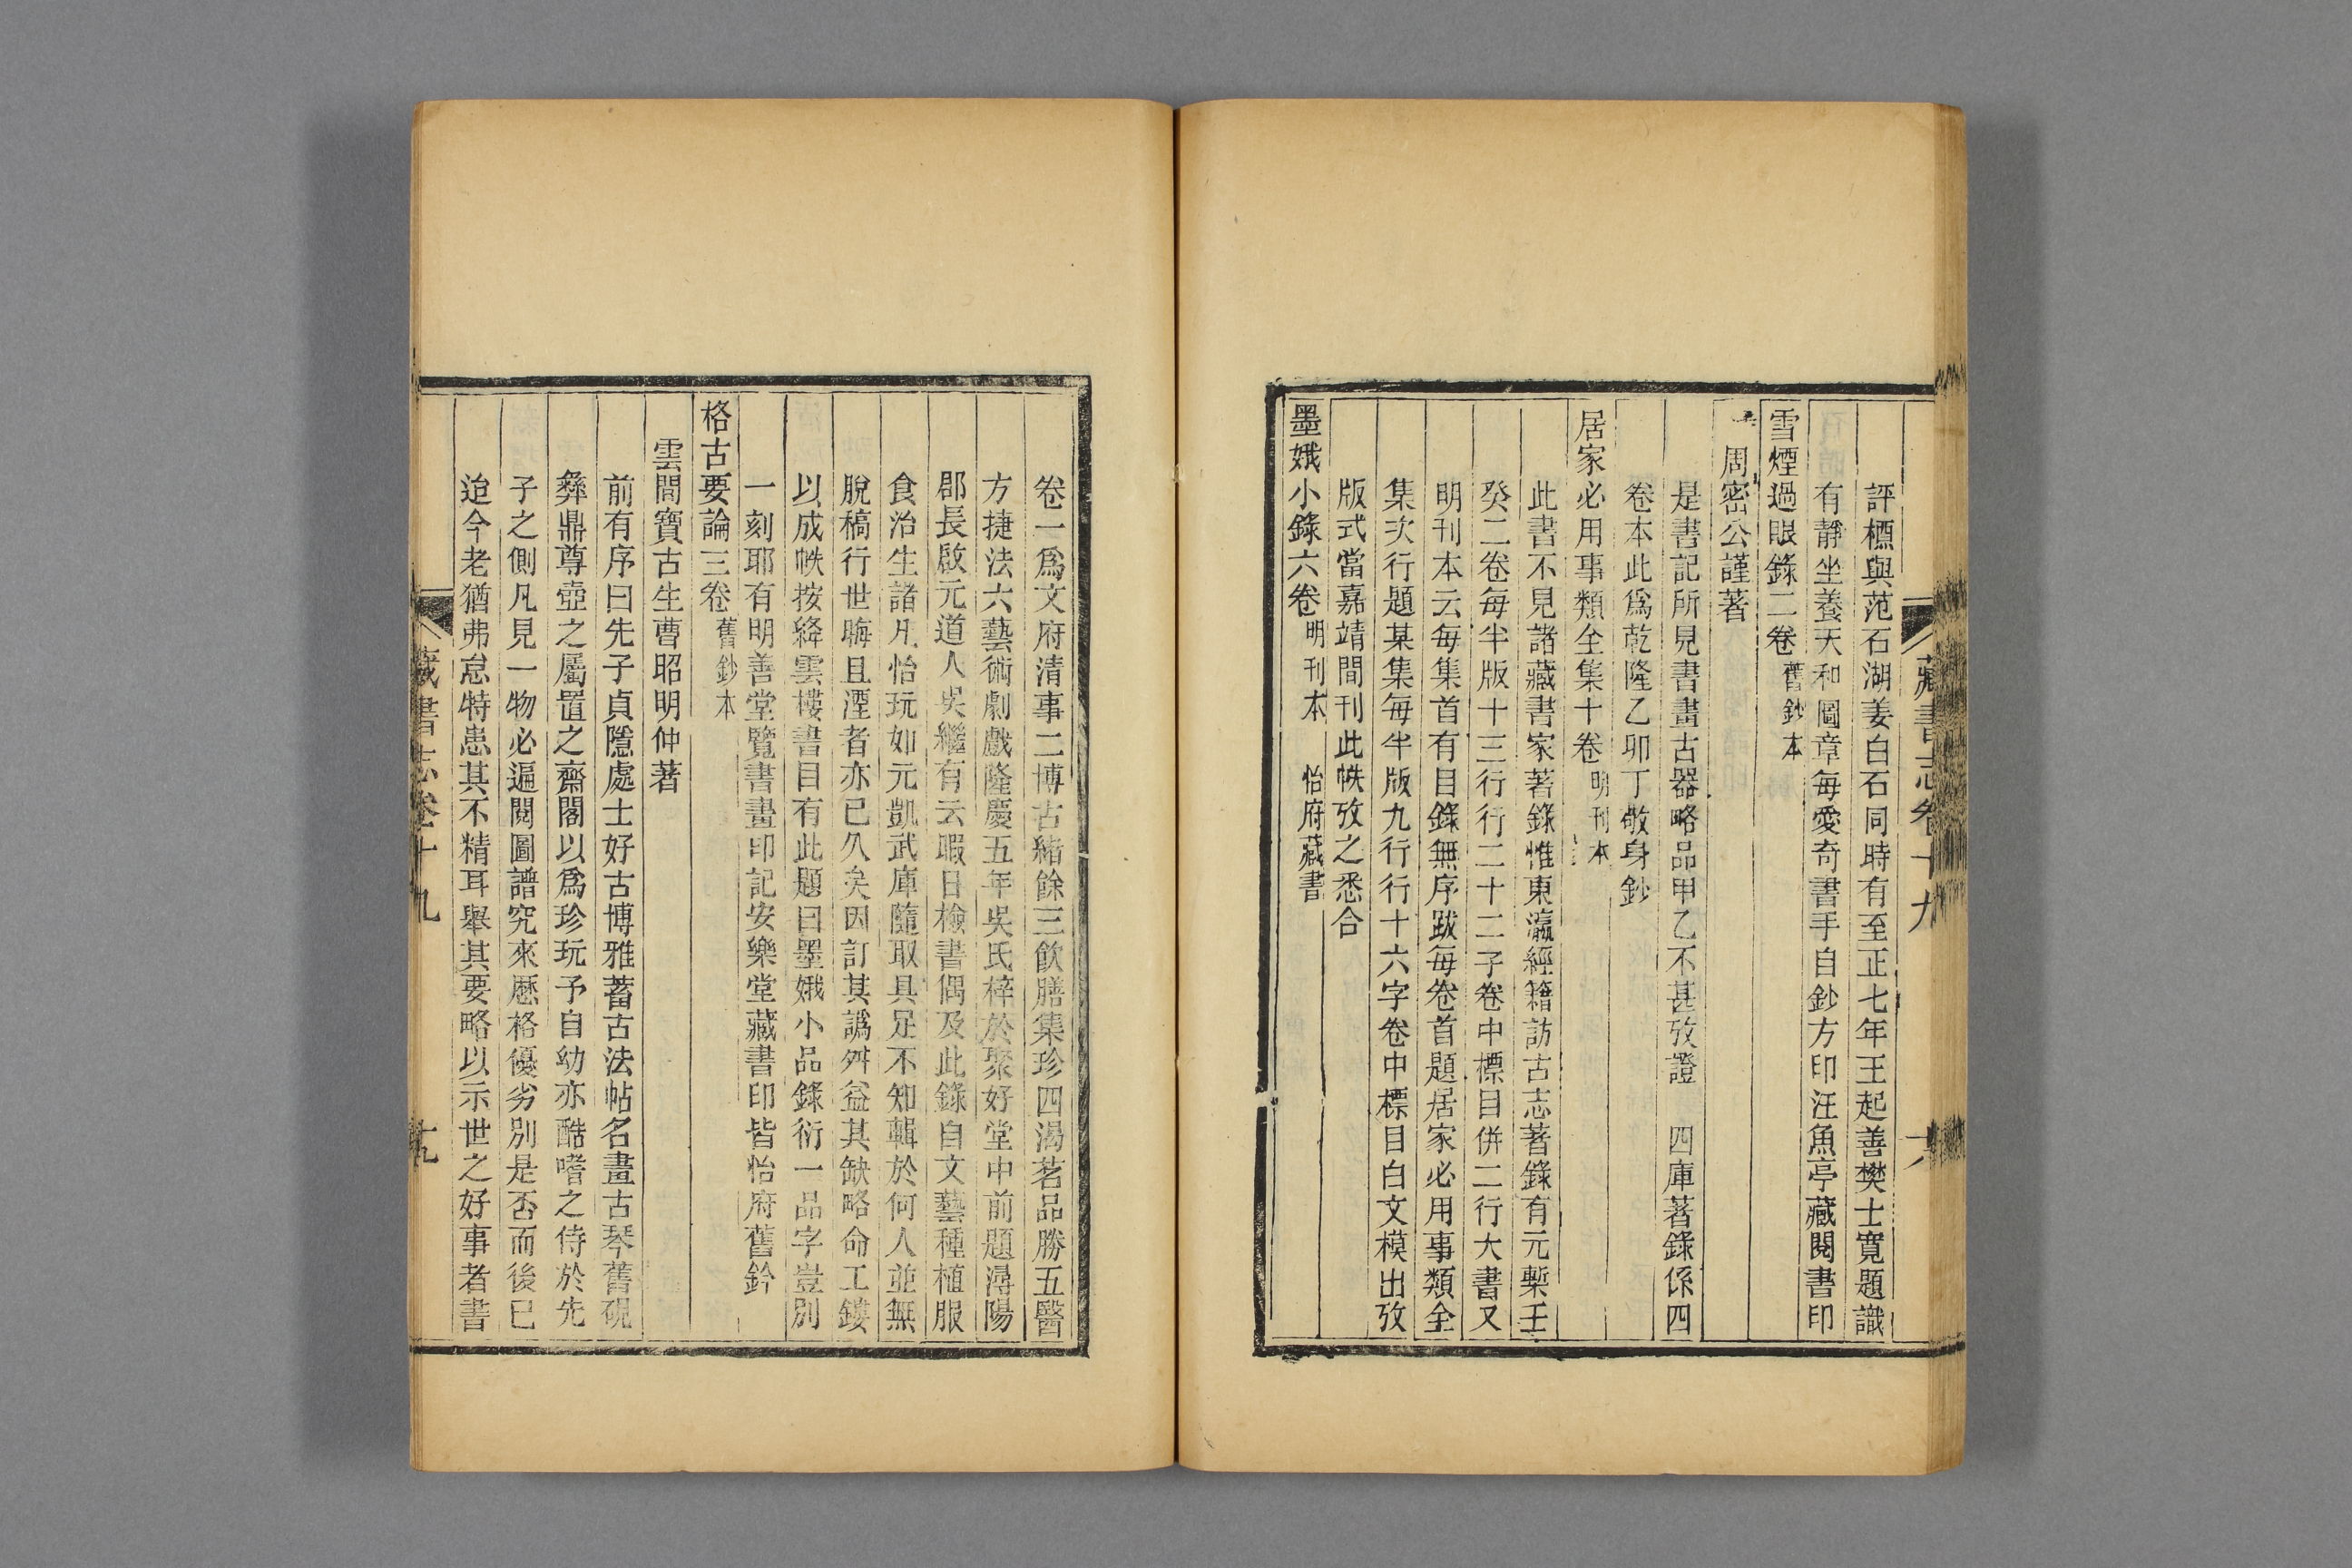 藏書志卷十九
評橅與范石湖姜白石同時有至正七年王起善樊士寬題識
有靜坐養天和圖章每愛奇書手自鈔方印汪魚亭藏閱書印
雪煙過眼錄二卷舊鈔本
周密公謹著
是書記所見書畫古器略品甲乙不甚攷證 四庫著錄係四
卷本此爲乾隆乙卯丁敬身鈔
居家必用事類全集十卷明刊本
此書不見諸藏書家著錄惟東瀛經籍訪古志著錄有元槧壬
癸二卷每半版十三行行二十二子卷中標目併二行大書又
明刊本云每集首有目錄無序跋每卷首題居家必用事類全
集次行題某集每半版九行行十六字卷中標目白文模出攷
版式當嘉靖間刊此帙攷之悉合
墨娥小錄六卷明刊本 怡府藏書
卷一爲文府清事二博古緒餘三飲膳集珍四湯茗品勝五醫
方捷法六藝術劇戲隆慶五年吳氏梓於聚好堂中前題潯陽
郡長啟元道人吳繼有云暇日檢書偶及此錄自文藝種植服
食治生諸凡怡玩如元凱武庫隨取具足不知輯於何人並無
脫稿行世晦且湮者亦已久矣因訂其譌舛益其缺略命工鏤
以成帙按絳雲樓書目有此題曰墨娥小品錄衍一品字豈別
一刻耶有明善堂覽書畫印記安樂堂藏書印皆怡府舊鈐
格古要論三卷舊鈔本
雲間寶古生曹昭明仲著
前有序曰先子貞隱處士好古博雅蓄古法帖名畫古琴舊硯
彝鼎尊壺之屬置之齋閣以爲珍玩予自幼亦酷嗜之侍於先
子之側凡見一物必遍閱圖譜究來歷格優劣別是否而後已
迨今老猶弗怠特患其不精耳舉其要略以示世之好事者書
藏書志卷十九
十九